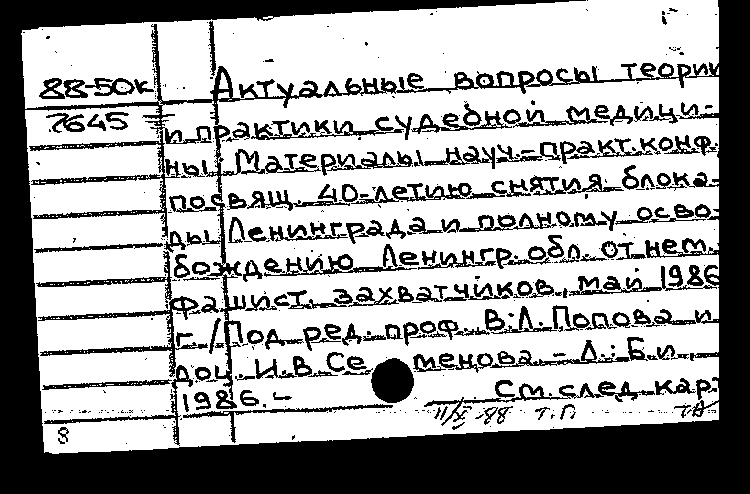 88-50к Актуальные вопросы теории
7645 и практики судебной медици-
ны: Материалы науч.-практ.конф.
посвящ. 40-летию снятия блока-
ды Ленинграда и полному осво-
бождению Ленингр. обл. от нем.
фашист. захватчиков, май 1986
г. /Под ред. проф. В.Л.Попова и
доц. И.В.Семенова. - Л.: Б.и.,
1986. -
См.след.кар.
11/XI-88 т.п
8